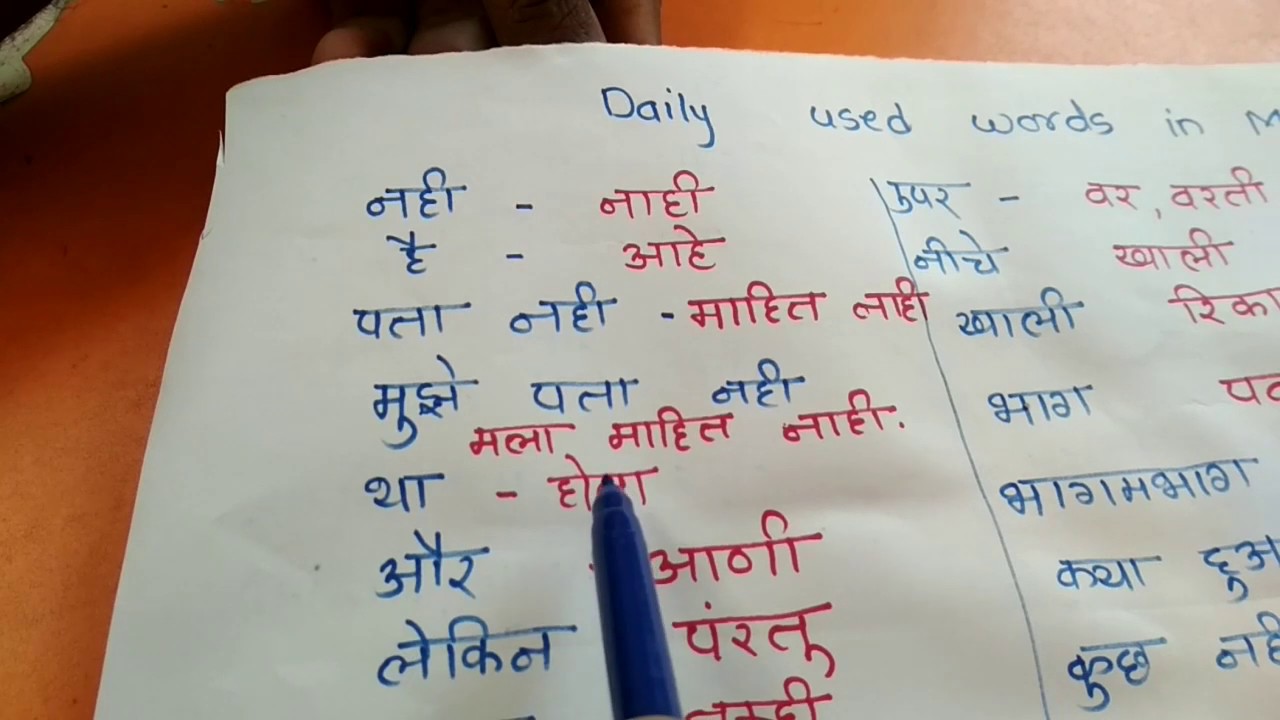 Daily used words in
नही - नाही
है - आहे
पता नही - माहित नाही
मुझे पता नही
मला माहित नाही.
था -
और आणी
लेकिन पंरतू
उपर - वर, वरती
नीचे खाली
खाली
भाग
भागमभाग
क्या
कुछ